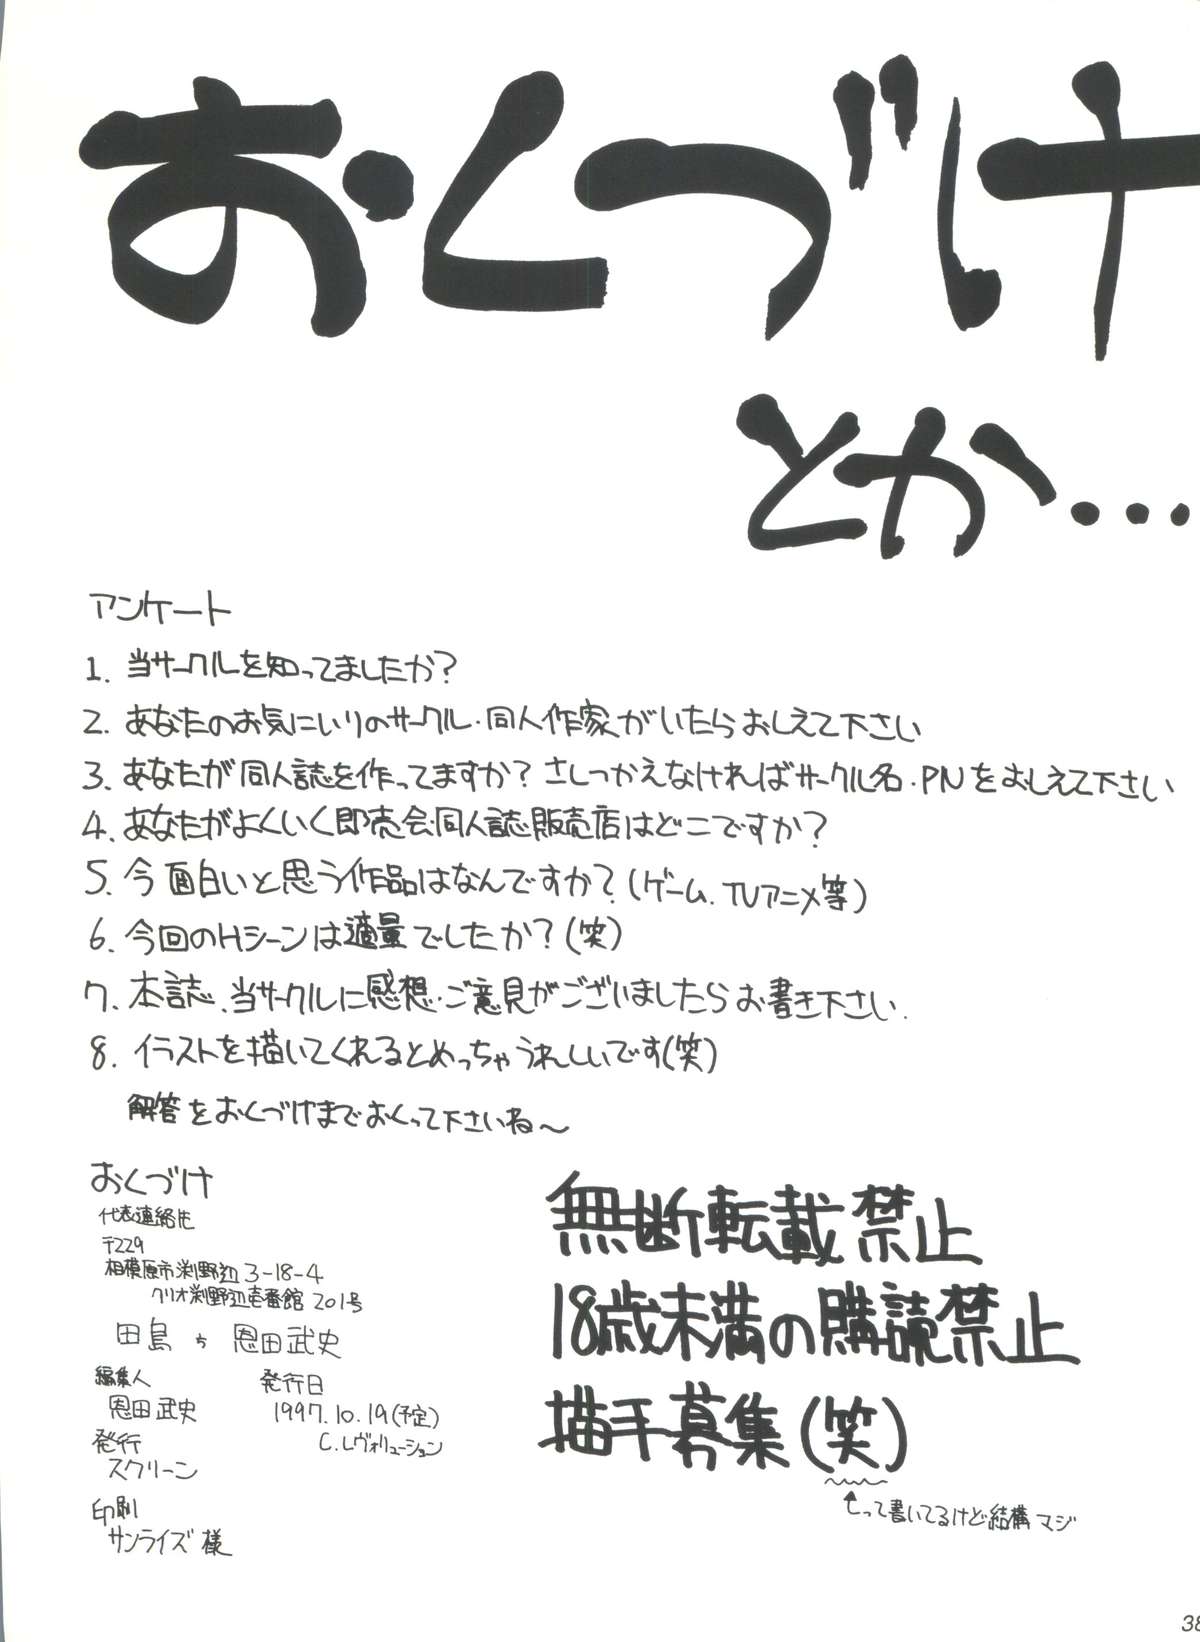 おくづけ
とか...
アンケート
1. 当サークルを知ってましたか?
2. あなたのお気にいりのサークル・同人作家がいたらおしえて下さい
3. あなたが同人誌を作ってますか? さしつかえなければサークル名・PNをおしえて下さい
4. あなたがよくいく即売会・同人誌販売店はどこですか?
5. 今面白いと思う作品はなんですか?(ゲーム、TVアニメ等)
6. 今回のHシーンは適量でしたか?(笑)
7. 本誌、当サークルに感想・ご意見がございましたらお書き下さい.
8. イラストを描いてくれるとめっちゃうれしいです(笑)
解答をおくづけまでおくって下さいね〜
おくづけ
代表連絡先
〒229
相模原市渕野辺3-18-4
クリオ渕野辺壱番館201号
田島方 恩田武史
編集人
恩田武史
発行日
1997.10.19(予定)
C.レヴォリューション
発行
スクリーン
印刷
サンライズ様
無断転載禁止
18歳未満の購読禁止
描手募集(笑)
って書いてるけど結構マジ
38